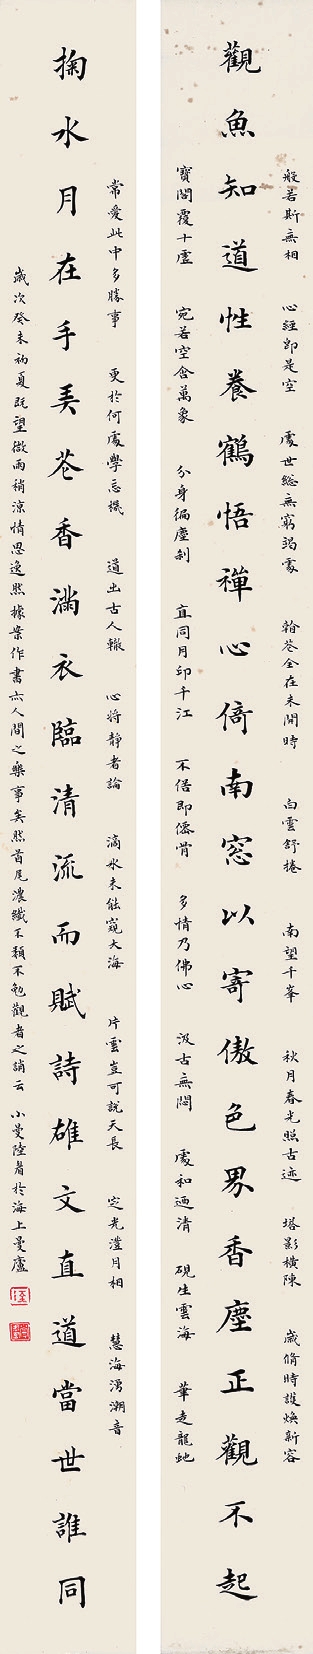 般若斯無相 心經即是空 處世總無窮竭處 翰花全在未開時 白雲舒捲 南望千峯 秋月春光照古迹 塔影橫陳 歲脩時護煥新容
觀魚知道性養鶴悟禪心倚南窓以寄傲色界香塵正觀不起
寶閣覆十虛 宛若空含萬象 分身徧塵剎 直同月印千江 不俗即僊骨 多情乃佛心 汲古無悶 處和迺清 硯生雲海 筆走龍虵
常愛此中多勝事 更於何處學忘機 道出古人轍 心將靜者論 滴水未能窺大海 片雲豈可說天長 定光澄月相 慧海湧潮音
掬水月在手弄花香滿衣臨清流而賦詩雄文直道當世誰同
歲次癸未初夏既望微雨稍涼情思逸然據案作書亦人間之樂事矣然首尾濃纖不類不勉觀者之誚云 小曼陸眉於海上曼廬